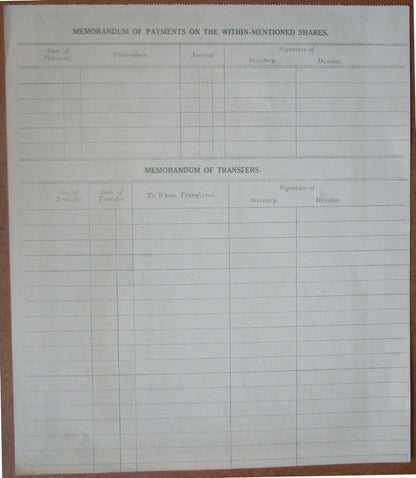 MEMORANDUM OF PAYMENTS ON THE WITHIN-MENTIONED SHARES.
Date of Payment. Particulars. Amount Signature of
Secretary. Director.
MEMORANDUM OF TRANSFERS.
No. of Transfer. Date of Transfer. To Whom Transferred. Signature of
Secretary. Director.